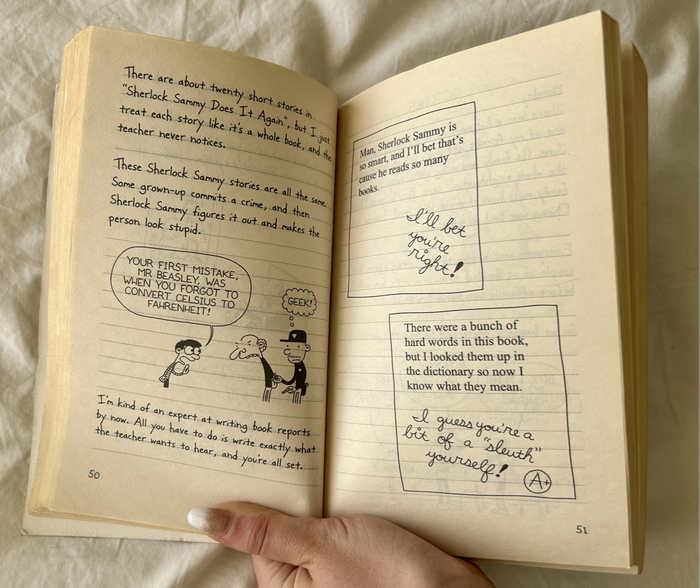 There are about twenty short stories in
"Sherlock Sammy Does It Again", but I just
treat each story like it's a whole book, and the
teacher never notices.
These Sherlock Sammy stories are all the same.
Some grown-up commits a crime, and then
Sherlock Sammy figures it out and makes the
person look stupid.
YOUR FIRST MISTAKE,
MR BEASLEY, WAS
WHEN YOU FORGOT TO
CONVERT CELSIUS TO
FAHRENHEIT!
GEEK!
I'm kind of an expert at writing book reports
by now. All you have to do is write exactly what
the teacher wants to hear, and you're all set.
50
Man, Sherlock Sammy is
so smart, and I'll bet that's
cause he reads so many
books.
I'll bet
you're
right!
There were a bunch of
hard words in this book,
but I looked them up in
the dictionary so now I
know what they mean.
I guess you're a
bit of a "sleuth"
yourself!
A+
51